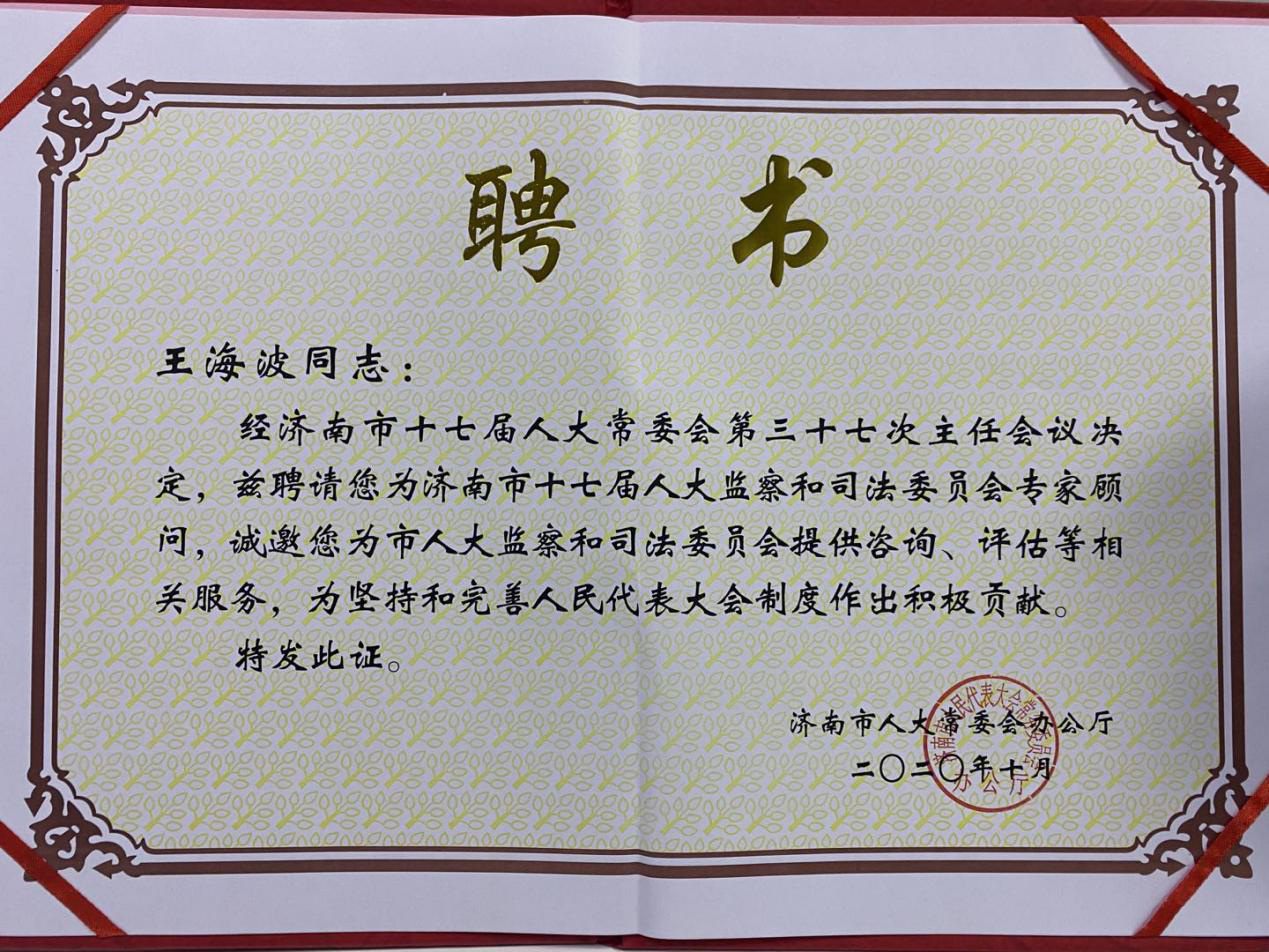 聘 书
王海波同志：
经济南市十七届人大常委会第三十七次主任会议决
定，兹聘请您为济南市十七届人大监察和司法委员会专家顾
问，诚邀您为市人大监察和司法委员会提供咨询、评估等相
关服务，为坚持和完善人民代表大会制度作出积极贡献。
特发此证。
济南市人大常委会办公厅
二〇二〇年十月
济南市人民代表大会常务委员会
办公厅